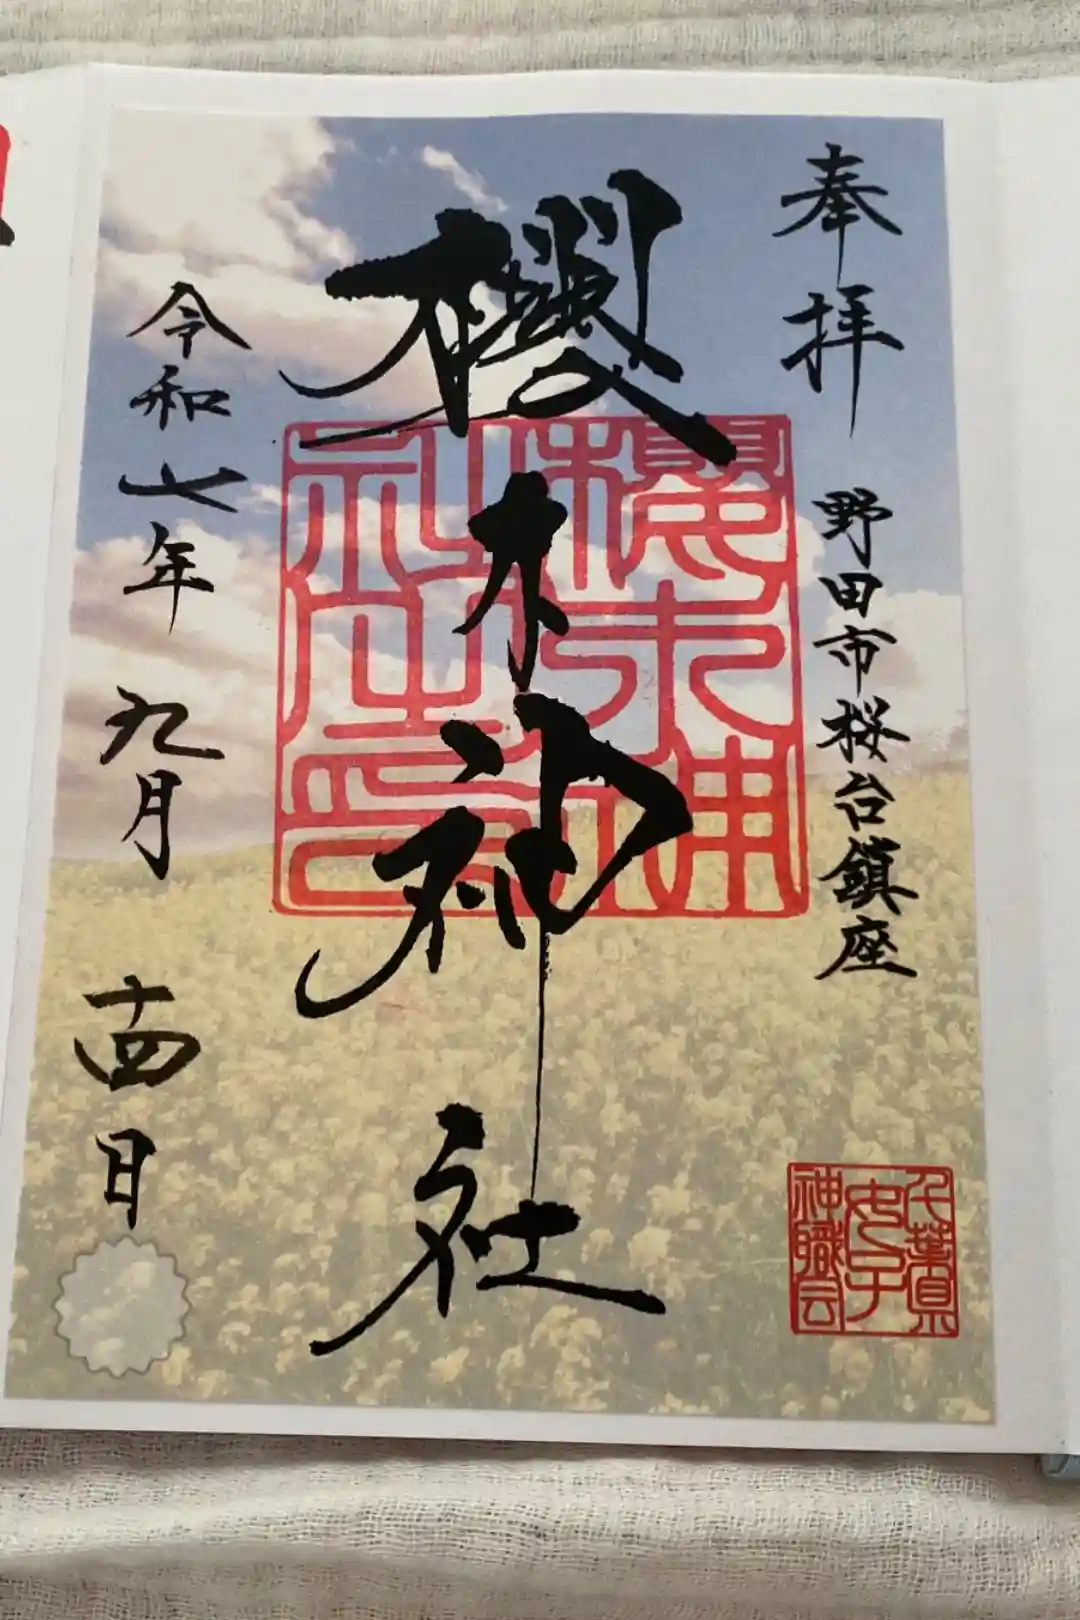 奉拝
野田市桜台鎮座
櫻木神社
櫻木神社之印
千葉県女子神職会
令和七年九月十四日